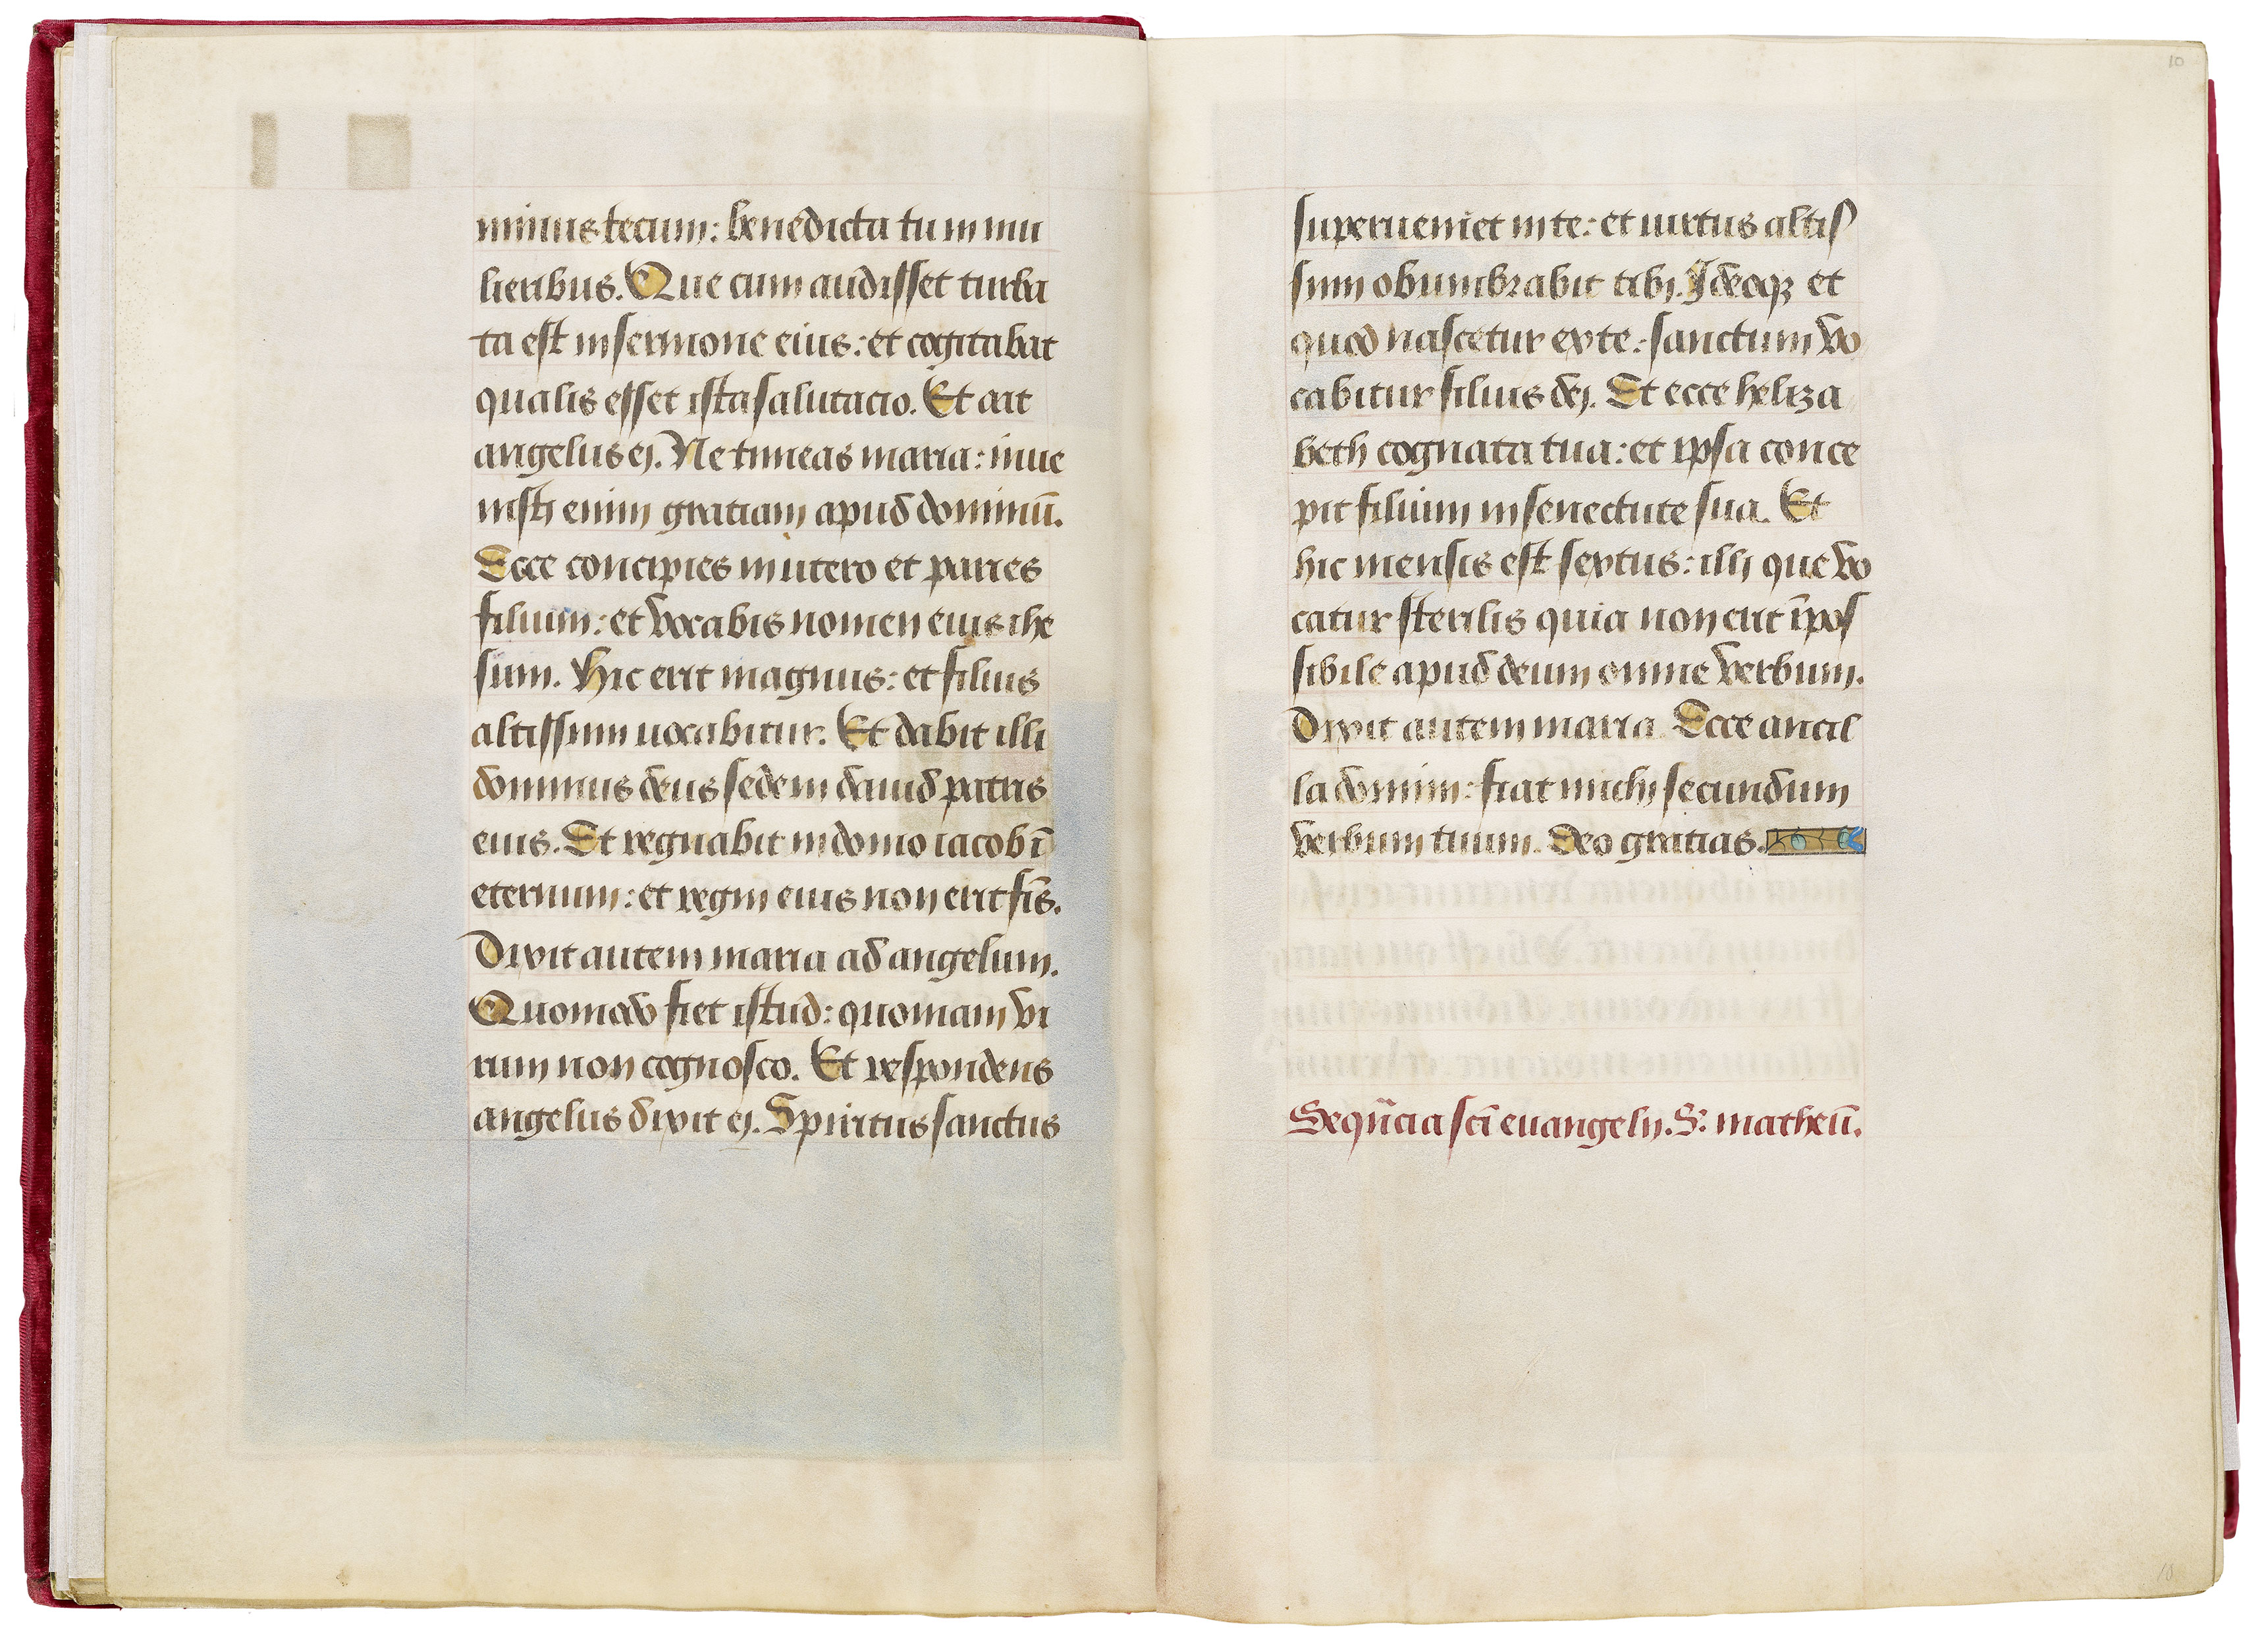 minus tecum: benedicta tu in mu
lieribus. Que cum audisset turba
ta est in sermone eius: et cogitabat
qualis esset ista salutacio. Et ait
angelus ej. Ne timeas maria: inue
nistj enim gratiam apud dominū.
Ecce concipies in utero et paries
filium: et vocabis nomen eius ihe
sum. Hic erit magnus: et filius
altissimi uocabitur. Et dabit illi
dominus deus sedem dauid patris
eius. Et regnabit in domo iacob ī
eternum: et regni eius non erit fīs.
Dixit autem maria ad angelum.
Quomodo fiet istud: quoniam vi
rum non cognosco. Et respondens
angelus dixit ej. Spiritus sanctus
10
superueniet in te: et uirtus altis
simi obumbrabit tibj. Ideoqꝫ et
quod nascetur ex te: sanctum vo
cabitur filius dej. Et ecce heliza
beth cognata tua: et ipsa conce
pit filium in senectute sua. Et
hic mensis est sextus: illj que vo
catur sterilis quia non erit īpos
sibile apud deum omne verbum.
Dixit autem maria. Ecce ancil
la domini: fiat michj secundum
verbum tuum. Deo gratias.
Seqūcia sc̄i euangelij. S: matheū.